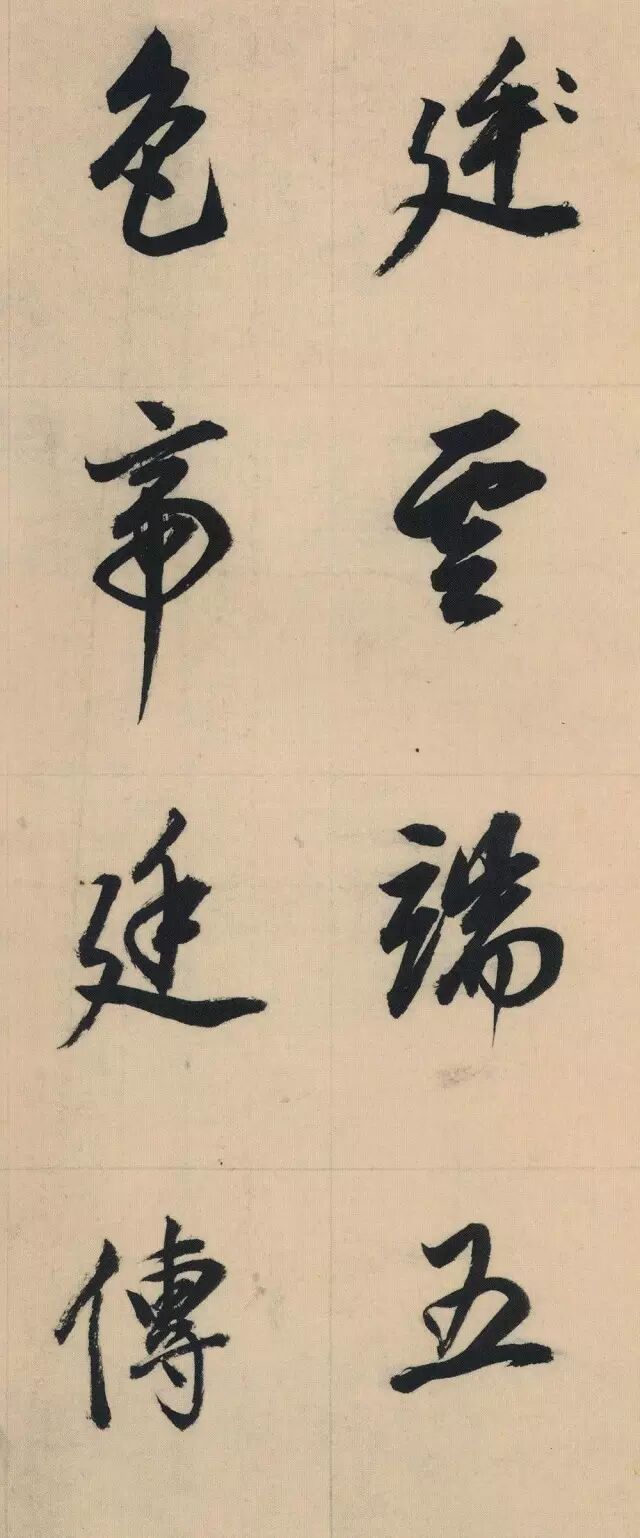 廷雲端五
色帝廷傳